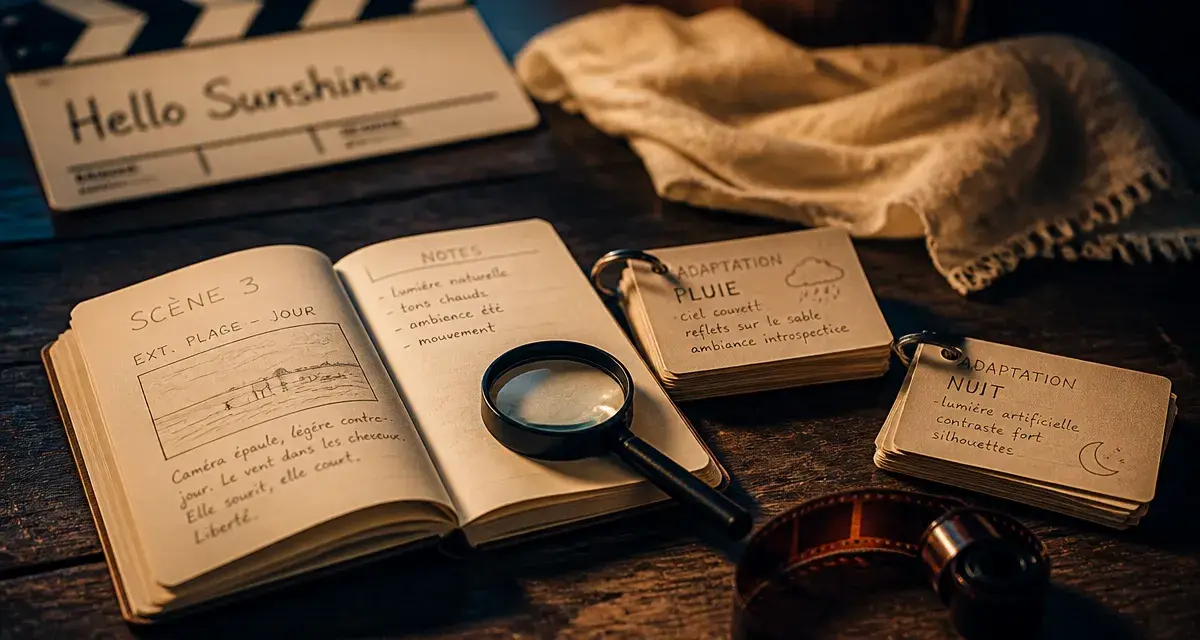 Hello Sunshine
SCÈNE 3
EXT. PLAGE - JOUR
Caméra épaule, légère contre-
jour. Le vent dans les cheveux.
Elle sourit, elle court.
Liberté.
NOTES
- Lumière naturelle
- tons chauds
- ambience été
- mouvement
ADAPTATION
PLUIE
- ciel couvert
reflets sur le sable
ambiance introspectice
ADAPTATION
NUIT
- lumière artificielle
contraste fort
silhouettes